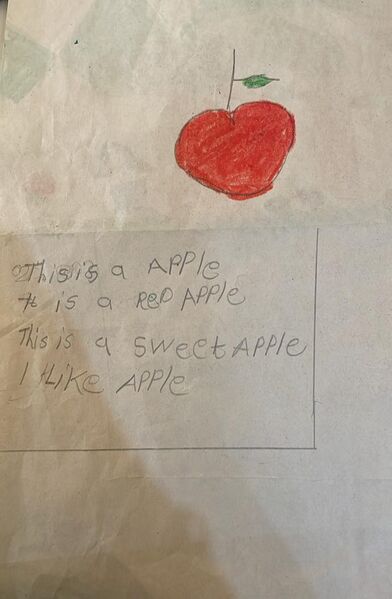 This is a APPle
It is a ReD APPle
This is a sweet APPle
I Like APPle